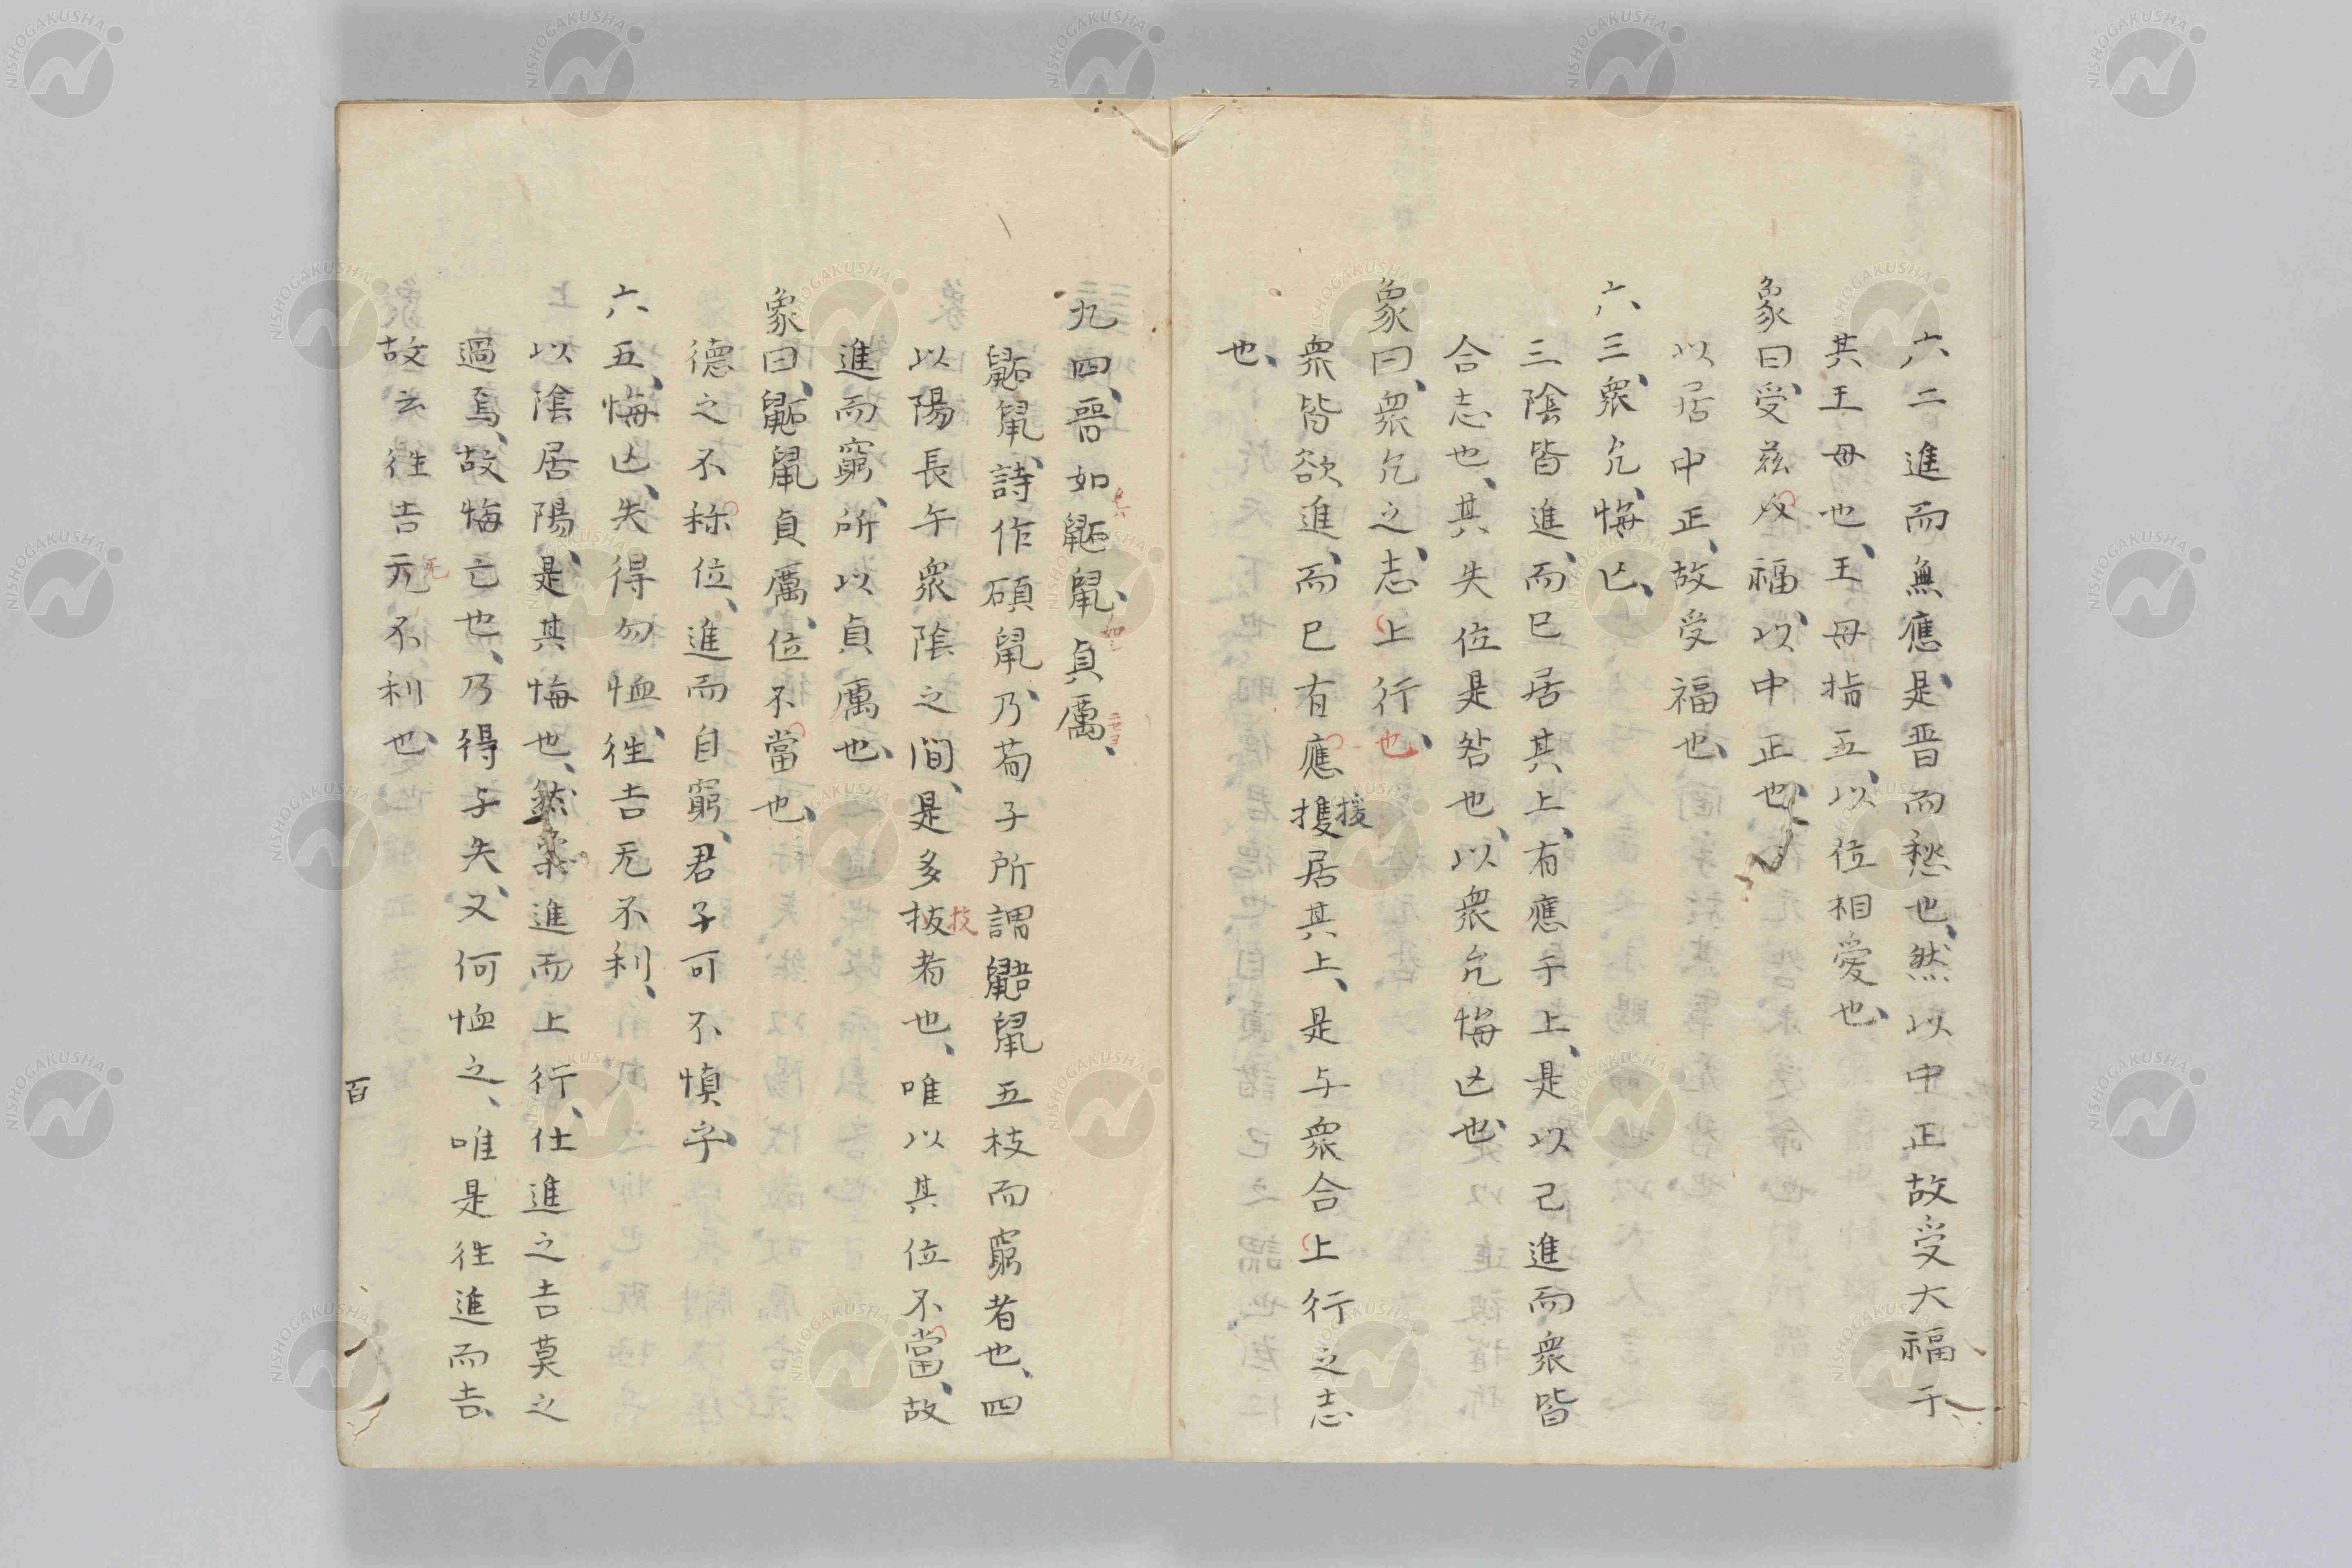 六二進而無應是晋而愁也、然以中正故受大福于
其王母也、王母指五、以位相愛也、
象曰、受茲福、以中正也、
以居中正、故受福也、
六三、衆允、悔亡、
三陰皆進、而已居其上、有應于上、是以己進而衆皆
合志也、其失位是咎也、以衆允悔亡也、
象曰、衆允之志、上行也、
衆皆欲進、而已有應援居其上、是与衆合上行之志
也、
九四、晋如鼫鼠、貞厲、
鼫鼠、詩作碩鼠、乃荀子所謂鼯鼠五枝而窮者也、四
以陽長午衆陰之間、是多技者也、唯以其位不當、故
進而窮、所以貞厲也、
象曰、鼫鼠貞厲、位不當也、
德之不称位、進而自窮、君子可不慎乎
六五、悔亡、失得勿恤、往吉无不利、
以陰居陽、是其悔也、然衆進而上行、仕進之吉莫之
過焉、故悔亡也、乃得与失、又何恤之、唯是往進而吉、
故云往吉无不利也、
百
NISHOGAKUSHA